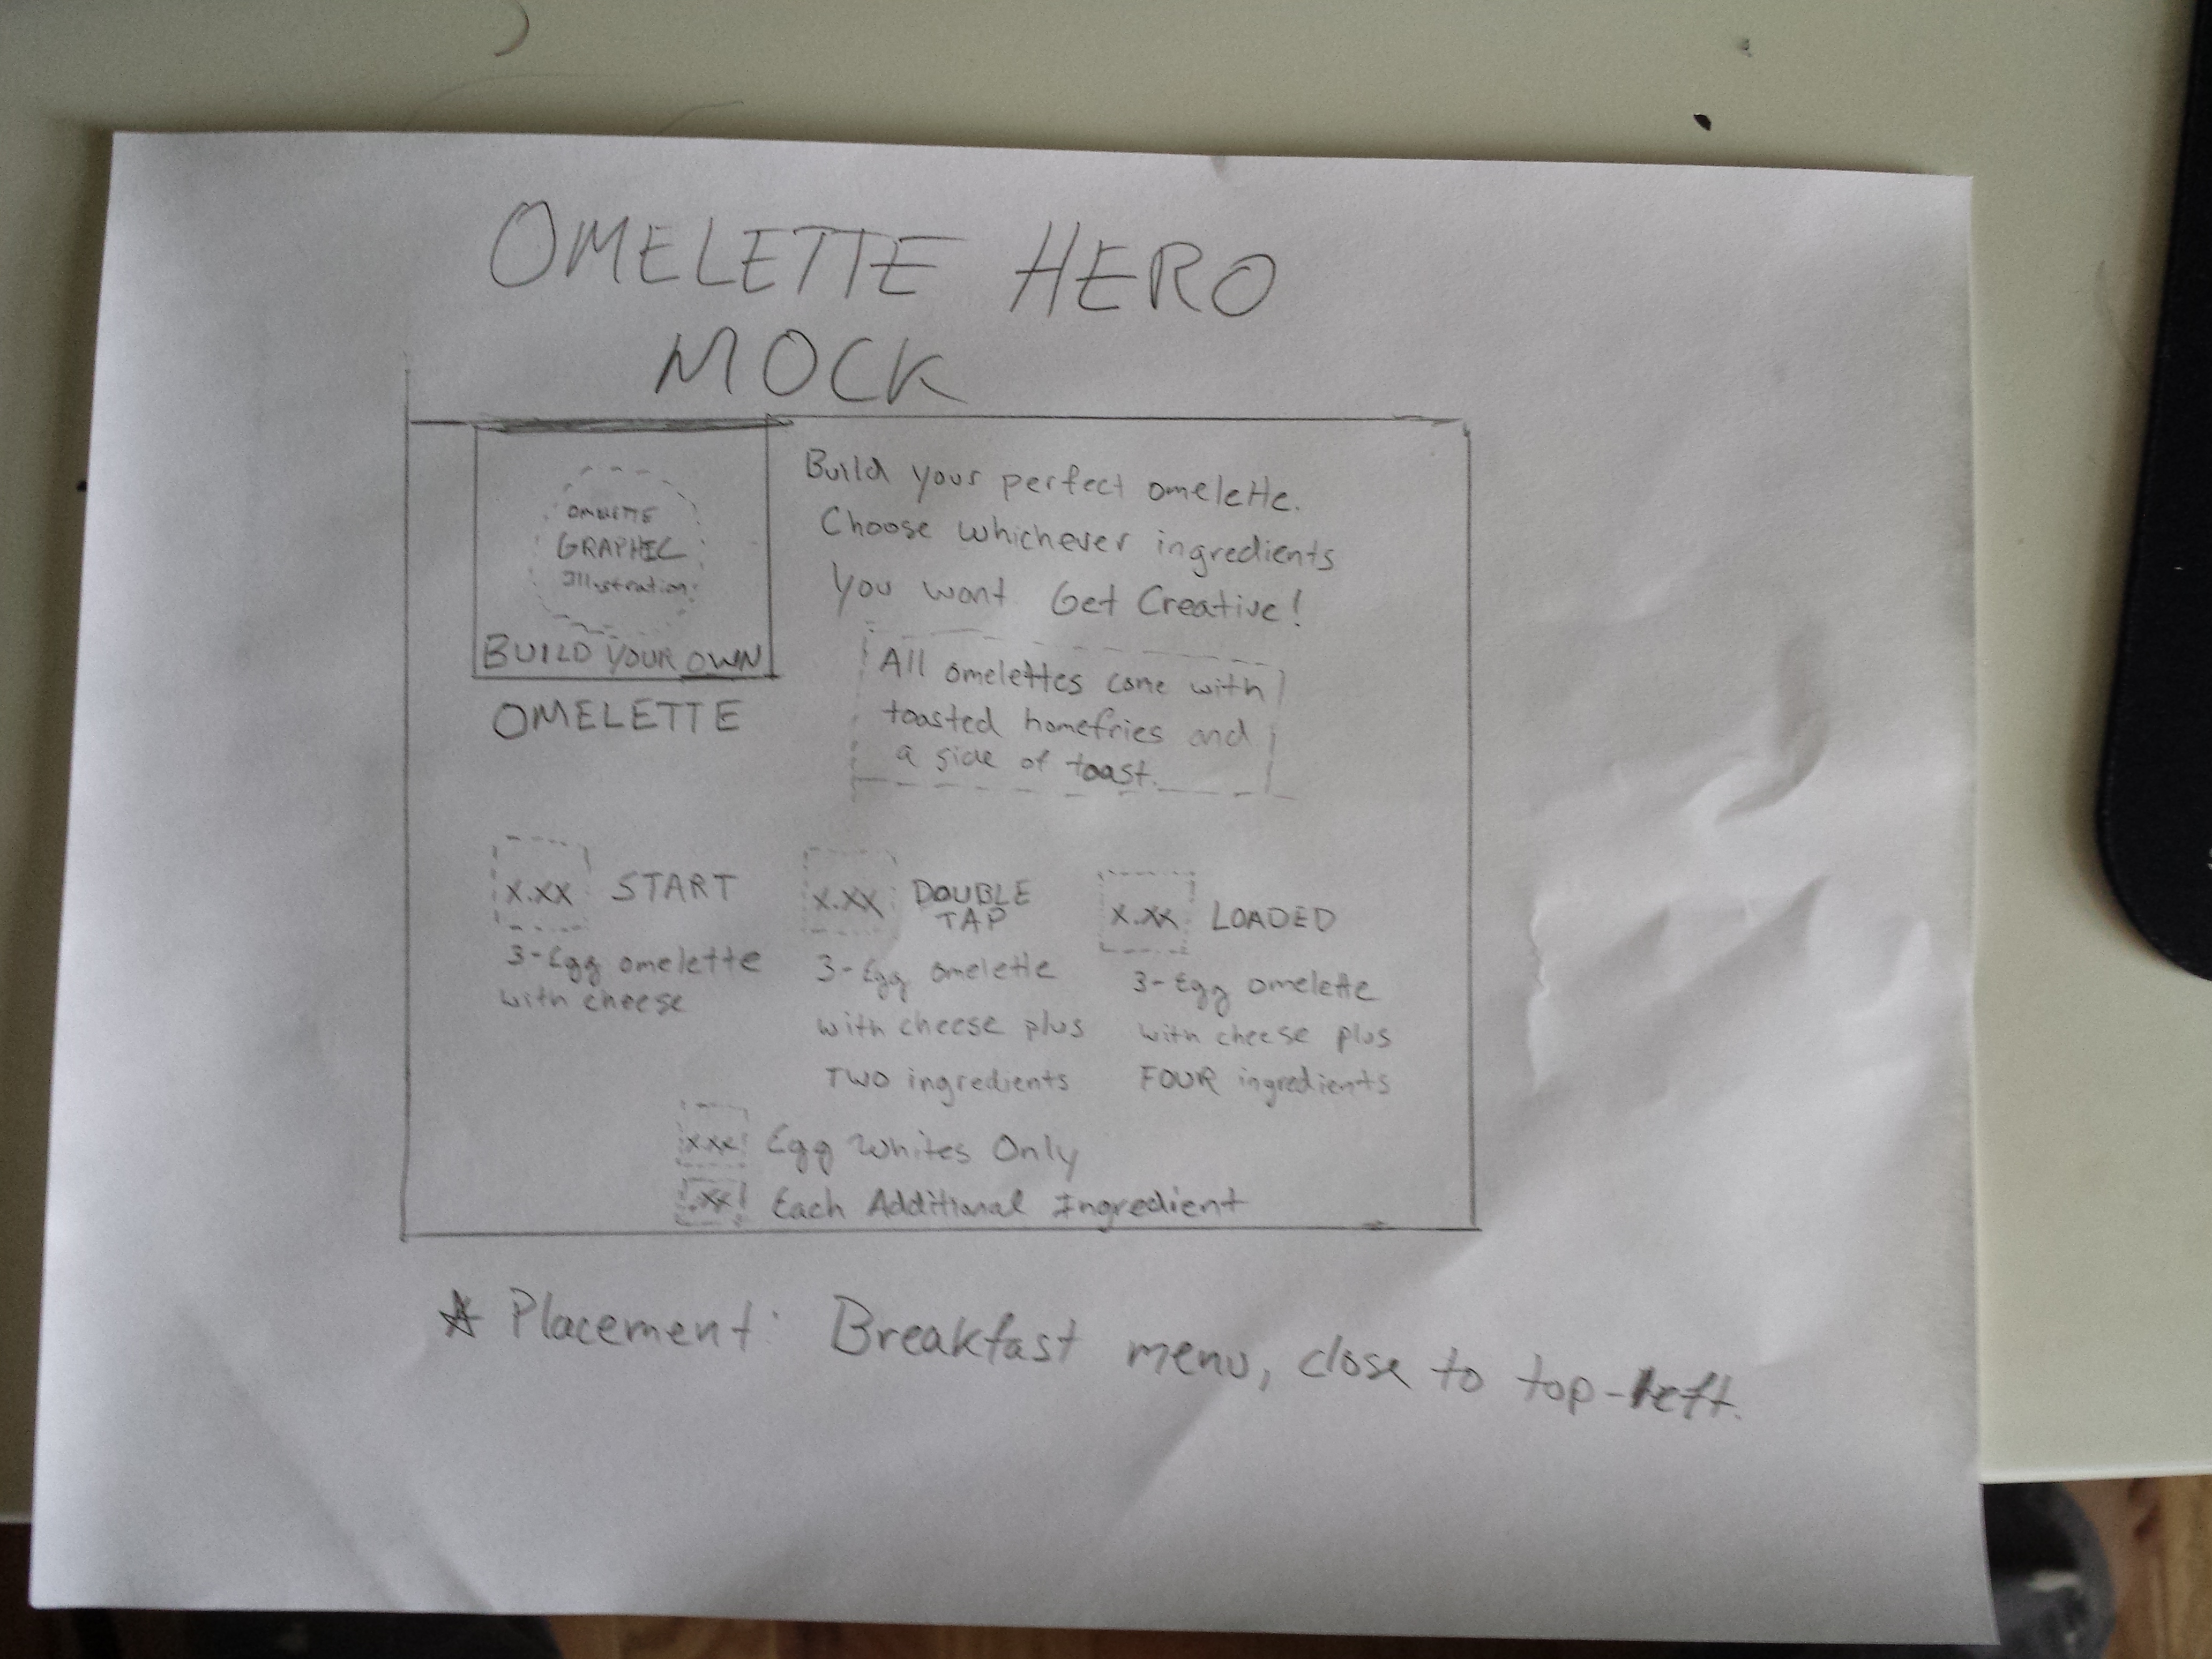 OMELETTE HERO
MOCK
OMELETTE
GRAPHIC
Illustration
BUILD YOUR OWN
OMELETTE
Build your perfect omelette.
Choose whichever ingredients
you want Get Creative!
All omelettes come with
toasted homefries and
a side of toast.
x.xx START
3-Egg omelette
with cheese
x.xx DOUBLE
TAP
3-Egg omelette
with cheese plus
TWO ingredients
x.xx LOADED
3-Egg omelette
with cheese plus
FOUR ingredients
x.xx Egg Whites Only
.xx Each Additional Ingredient
☆ Placement: Breakfast menu, close to top-left.